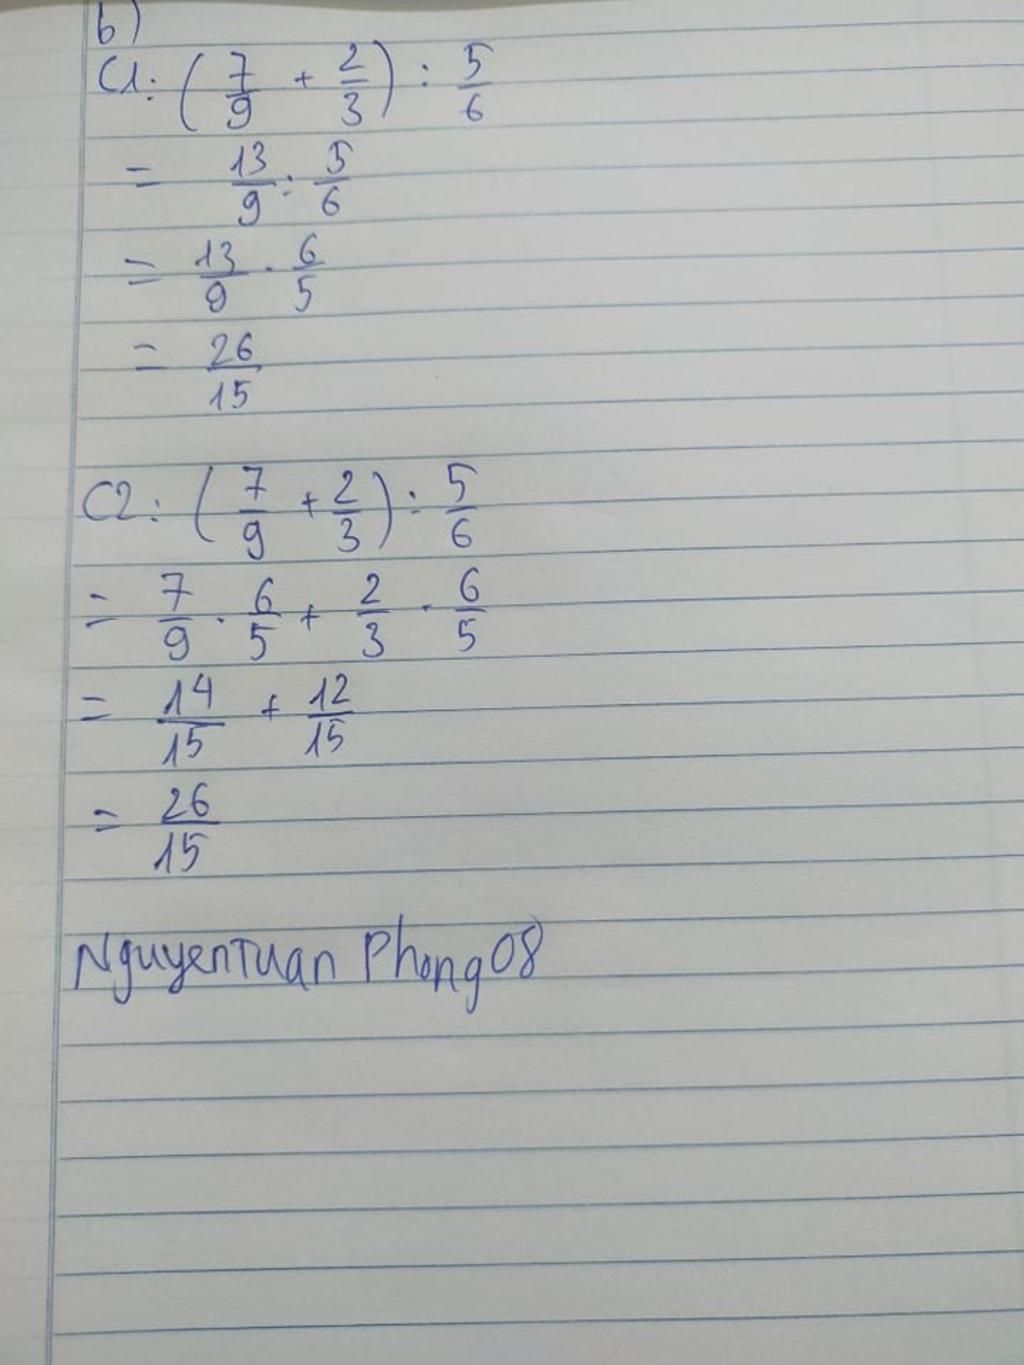 b)
C1: (7/9 + 2/3) : 5/6
= 13/9 : 5/6
= 13/9 . 6/5
= 26/15
C2: (7/9 + 2/3) : 5/6
= 7/9 . 6/5 + 2/3 . 6/5
= 14/15 + 12/15
= 26/15
NguyenTuan Phong08